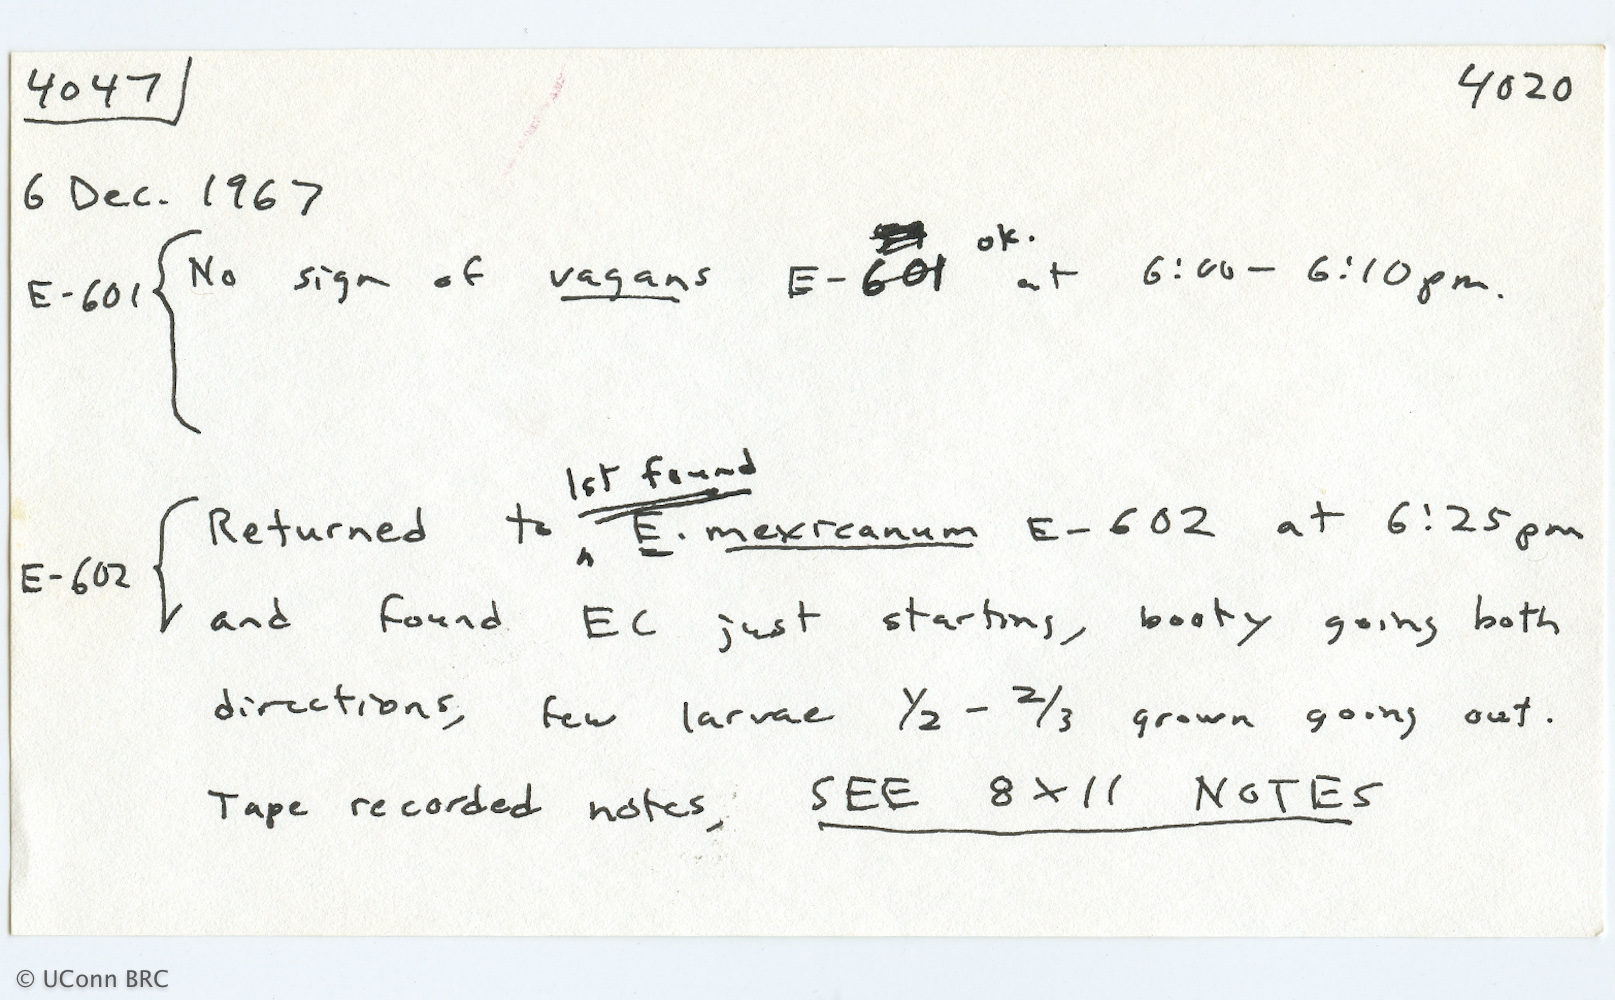 4047 4020
6 Dec. 1967
E-601 { No sign of vagans E-601 ok. at 6:00 - 6:10 pm.
1st found
E-602 { Returned to ^ E. mexicanum E-602 at 6:25 pm
and found EC just starting, booty going both
directions, few larvae 1/2 - 2/3 grown going out.
Tape recorded notes, SEE 8 X 11 NOTES
© UConn BRC